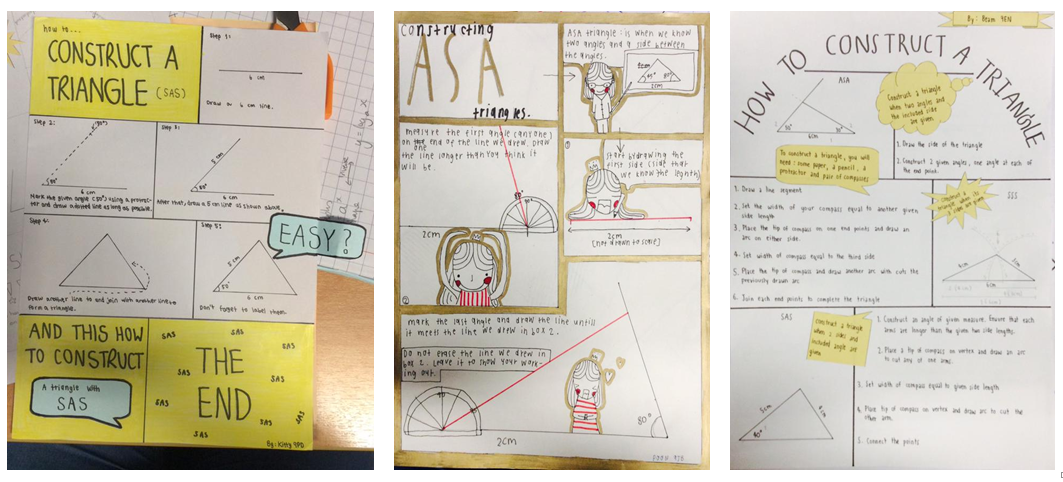 how to...
CONSTRUCT A
TRIANGLE (SAS)
Step 1:
6 cm
Draw a 6 cm line.
Step 2:
(80°)
80°
6 cm
Mark the given angle (80°) using a protrac-
tor and draw a dotted line as long as possible.
Step 3:
5 cm
80°
6 cm
After that, draw a 5 cm line as shown above.
Step 4:
Draw another line to and join with another line to
form a triangle.
Step 5:
5 cm
80°
6 cm
Don't forget to label them.
EASY?
AND THIS HOW
TO CONSTRUCT
A triangle with
SAS
THE
END
SAS
SAS
SAS
SAS
SAS
SAS
SAS
SAS
By: Kitty 9PD
constructing
ASA
triangles.
ASA triangle: is when we know
two angles and a side between
the angles.
80°
2cm
measure the first angle (anyone)
on the end of the line we drew. Draw
one
the line longer than you think it
will be.
2cm
②
①
Start by drawing the
first side (side that
we know the length)
2cm
(not drawn to scale)
mark the last angle and draw the line untill
it meets the line we drew in box 2.
Do not erase the line we drew in
box 2. Leave it to show your work-
ing out.
80°
2cm
By: Beam 9EN
HOW TO CONSTRUCT A TRIANGLE
ASA
6cm
Construct a
triangle
when two angles
and the
included side
are given
To construct a triangle, you will
need: some paper, a pencil, a
protractor and pair of compasses
1. Draw the side of the triangle
2. Construct 2 given angles, one angle at each of
the end point.
1. Draw a line segment
2. Set the width of your compass equal to another given
side length
3. Place the tip of compass on one end points and draw an
arc on either side.
4. Set width of compass equal to the third side
5. Place the tip of compass and draw another arc with cuts the
previously drawn arc
6. Join each end points to complete the triangle
SSS
construct a
triangle when
3 sides are given
SAS
construct a triangle
when 2 sides and
included angle are
given
60°
1. Construct an angle of given measure. Ensure that each
arms are longer than the given two side lengths.
2. Place a tip of compass on vertex and draw an arc
to cut any of one arms.
3. Set width of compass equal to given side length
4. Place tip of compass on vertex and draw arc to cut the
other arm.
5. Connect the points